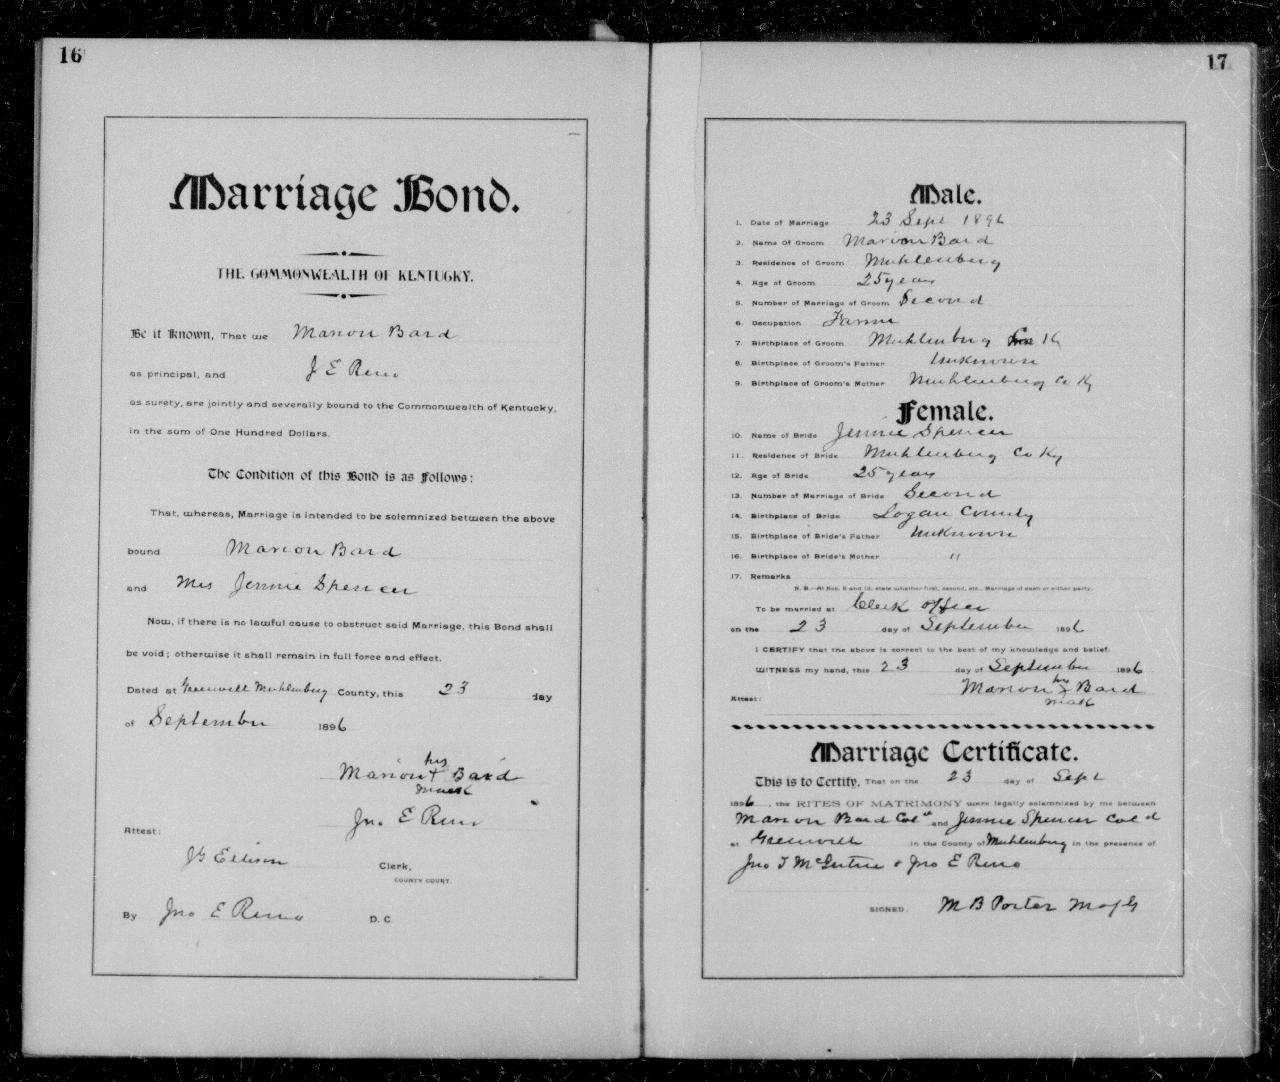 16
Marriage Bond.
THE COMMONWEALTH OF KENTUCKY.
Be it Known, That we Marion Bard
as principal, and J E Reno
as surety, are jointly and severally bound to the Commonwealth of Kentucky,
in the sum of One Hundred Dollars.
The Condition of this Bond is as Follows:
That, whereas, Marriage is intended to be solemnized between the above
bound Marion Bard
and Mrs Jennie Spencer
Now, if there is no lawful cause to obstruct said Marriage, this Bond shall
be void; otherwise it shall remain in full force and effect.
Dated at Greenville Muhlenberg County, this 23 day
of September 1896
his
Marion + Bard
mark
Jno E Reno
Attest:
J G Ellison Clerk,
COUNTY COURT.
By Jno E Reno D. C
17
Male.
1. Date of Marriage 23 Sept 1896
2. Name Of Groom Marion Bard
3. Residence of Groom Muhlenberg
4. Age of Groom 25 years
5. Number of Marriage of Groom Second
6. Occupation Farmer
7. Birthplace of Groom Muhlenberg Ky
8. Birthplace of Groom's Father Unknown
9. Birthplace of Groom's Mother Muhlenberg Co Ky
Female.
10. Name of Bride Jennie Spencer
11. Residence of Bride Muhlenberg Co Ky
12. Age of Bride 25 years
13. Number of Marriage of Bride Second
14. Birthplace of Bride Logan County
15. Birthplace of Bride's Father Unknown
16. Birthplace of Bride's Mother "
17. Remarks
N. B.—At Nos. 5 and 13, state whether first, second, etc., Marriage of each or either party.
To be married at Clerk office
on the 23 day of September 1896
I CERTIFY that the above is correct to the best of my knowledge and belief.
WITNESS my hand, this 23 day of September 1896
his
Marion x Bard
mark
Attest:
Marriage Certificate.
This is to Certify, That on the 23 day of Sept
1896, the RITES OF MATRIMONY were legally solemnized by me between
Marion Bard Cold and Jennie Spencer Cold
at Greenville in the County of Muhlenberg in the presence of
Jno T McGutrie & Jno E Reno
SIGNED. M B Porter